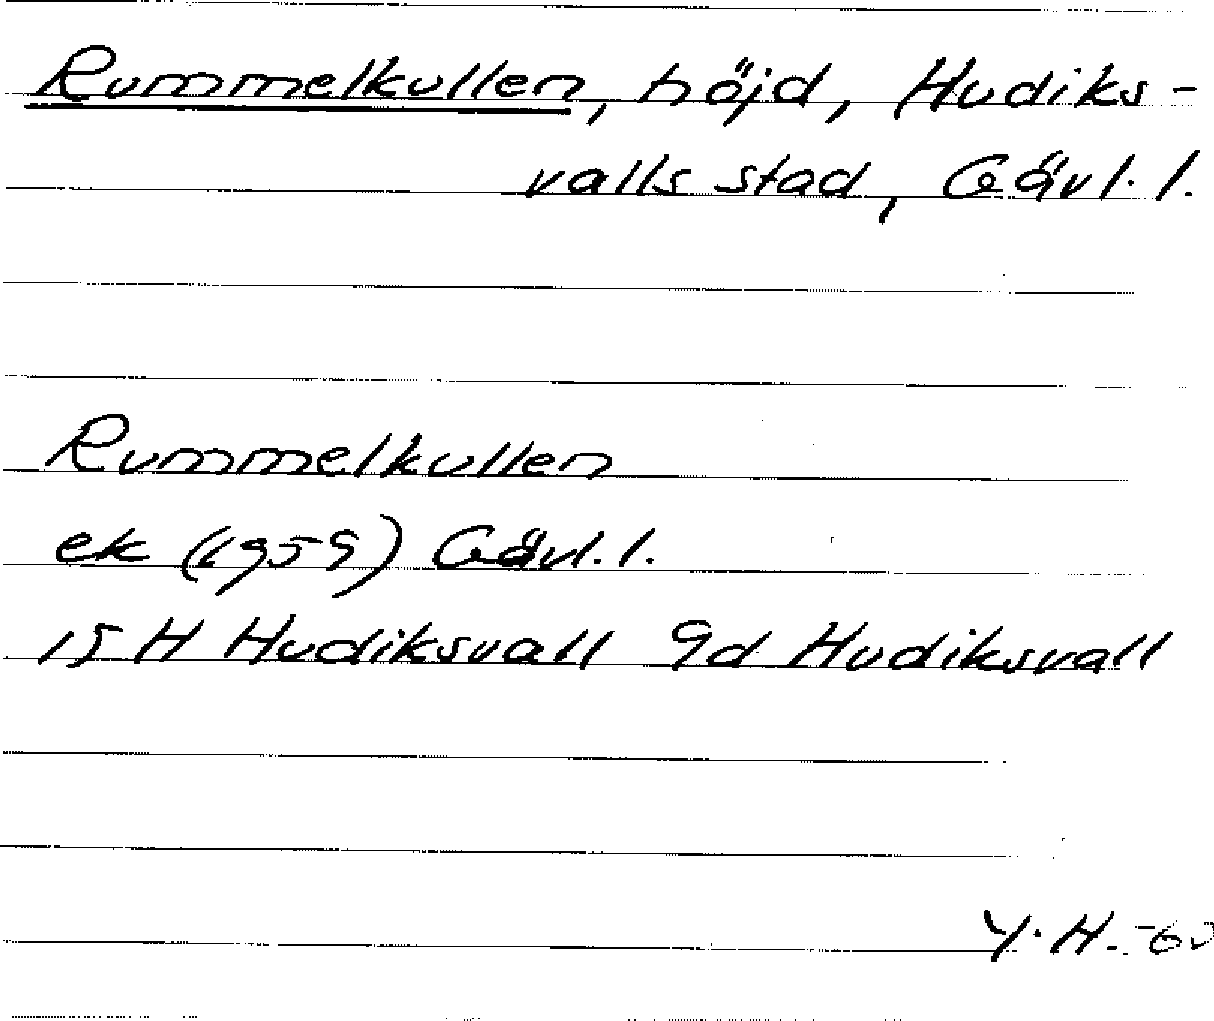 Rummelkullen, höjd, Hudiks-
valls stad, Gävl. l.
Rummelkullen
ek (1959) Gävl. l.
15 H Hudiksvall 9d Hudiksvall
Y. H. -60